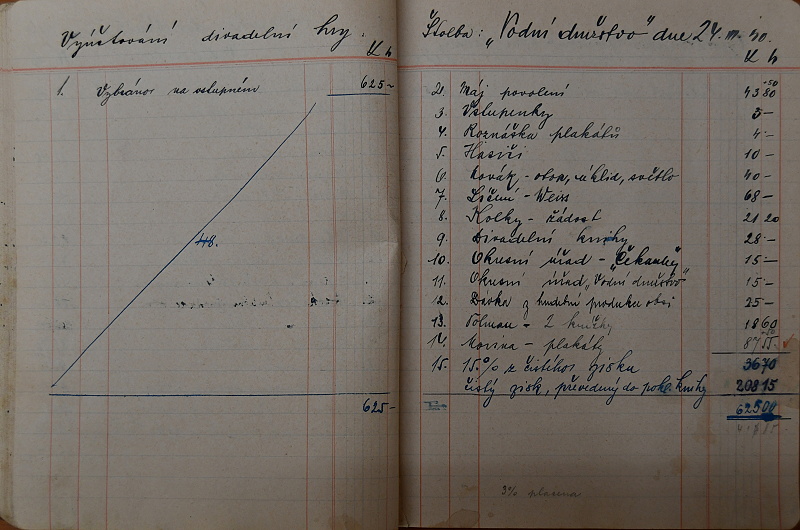 Vyúčtování divadelní hry.
K h
1. Vybráno na vstupném 625-
48.
625-
Štolba: „Vodní družstvo" dne 24. III. 40.
K h
2. Máj povolení 43 80
3. Vstupenky 3-
4. Roznáška plakátů 4-
5. Hasiči 10-
6. Kovář - otop, úklid, světlo 40-
7. Líčení - Weiss 68-
8. Kolky - žádost 21 20
9. Divadelní knihy 28-
10. Okresní úřad - „Čekanky" 15-
11. Okresní úřad, „Vodní družstvo" 15-
12. Dávka z hudební produkce obci 25-
13. 2 knížky 18 60
14. plakáty
15. 15% z čistého zisku 36 70
čistý zisk, převedený do pokl. knihy 208 15
625 00
3% placena